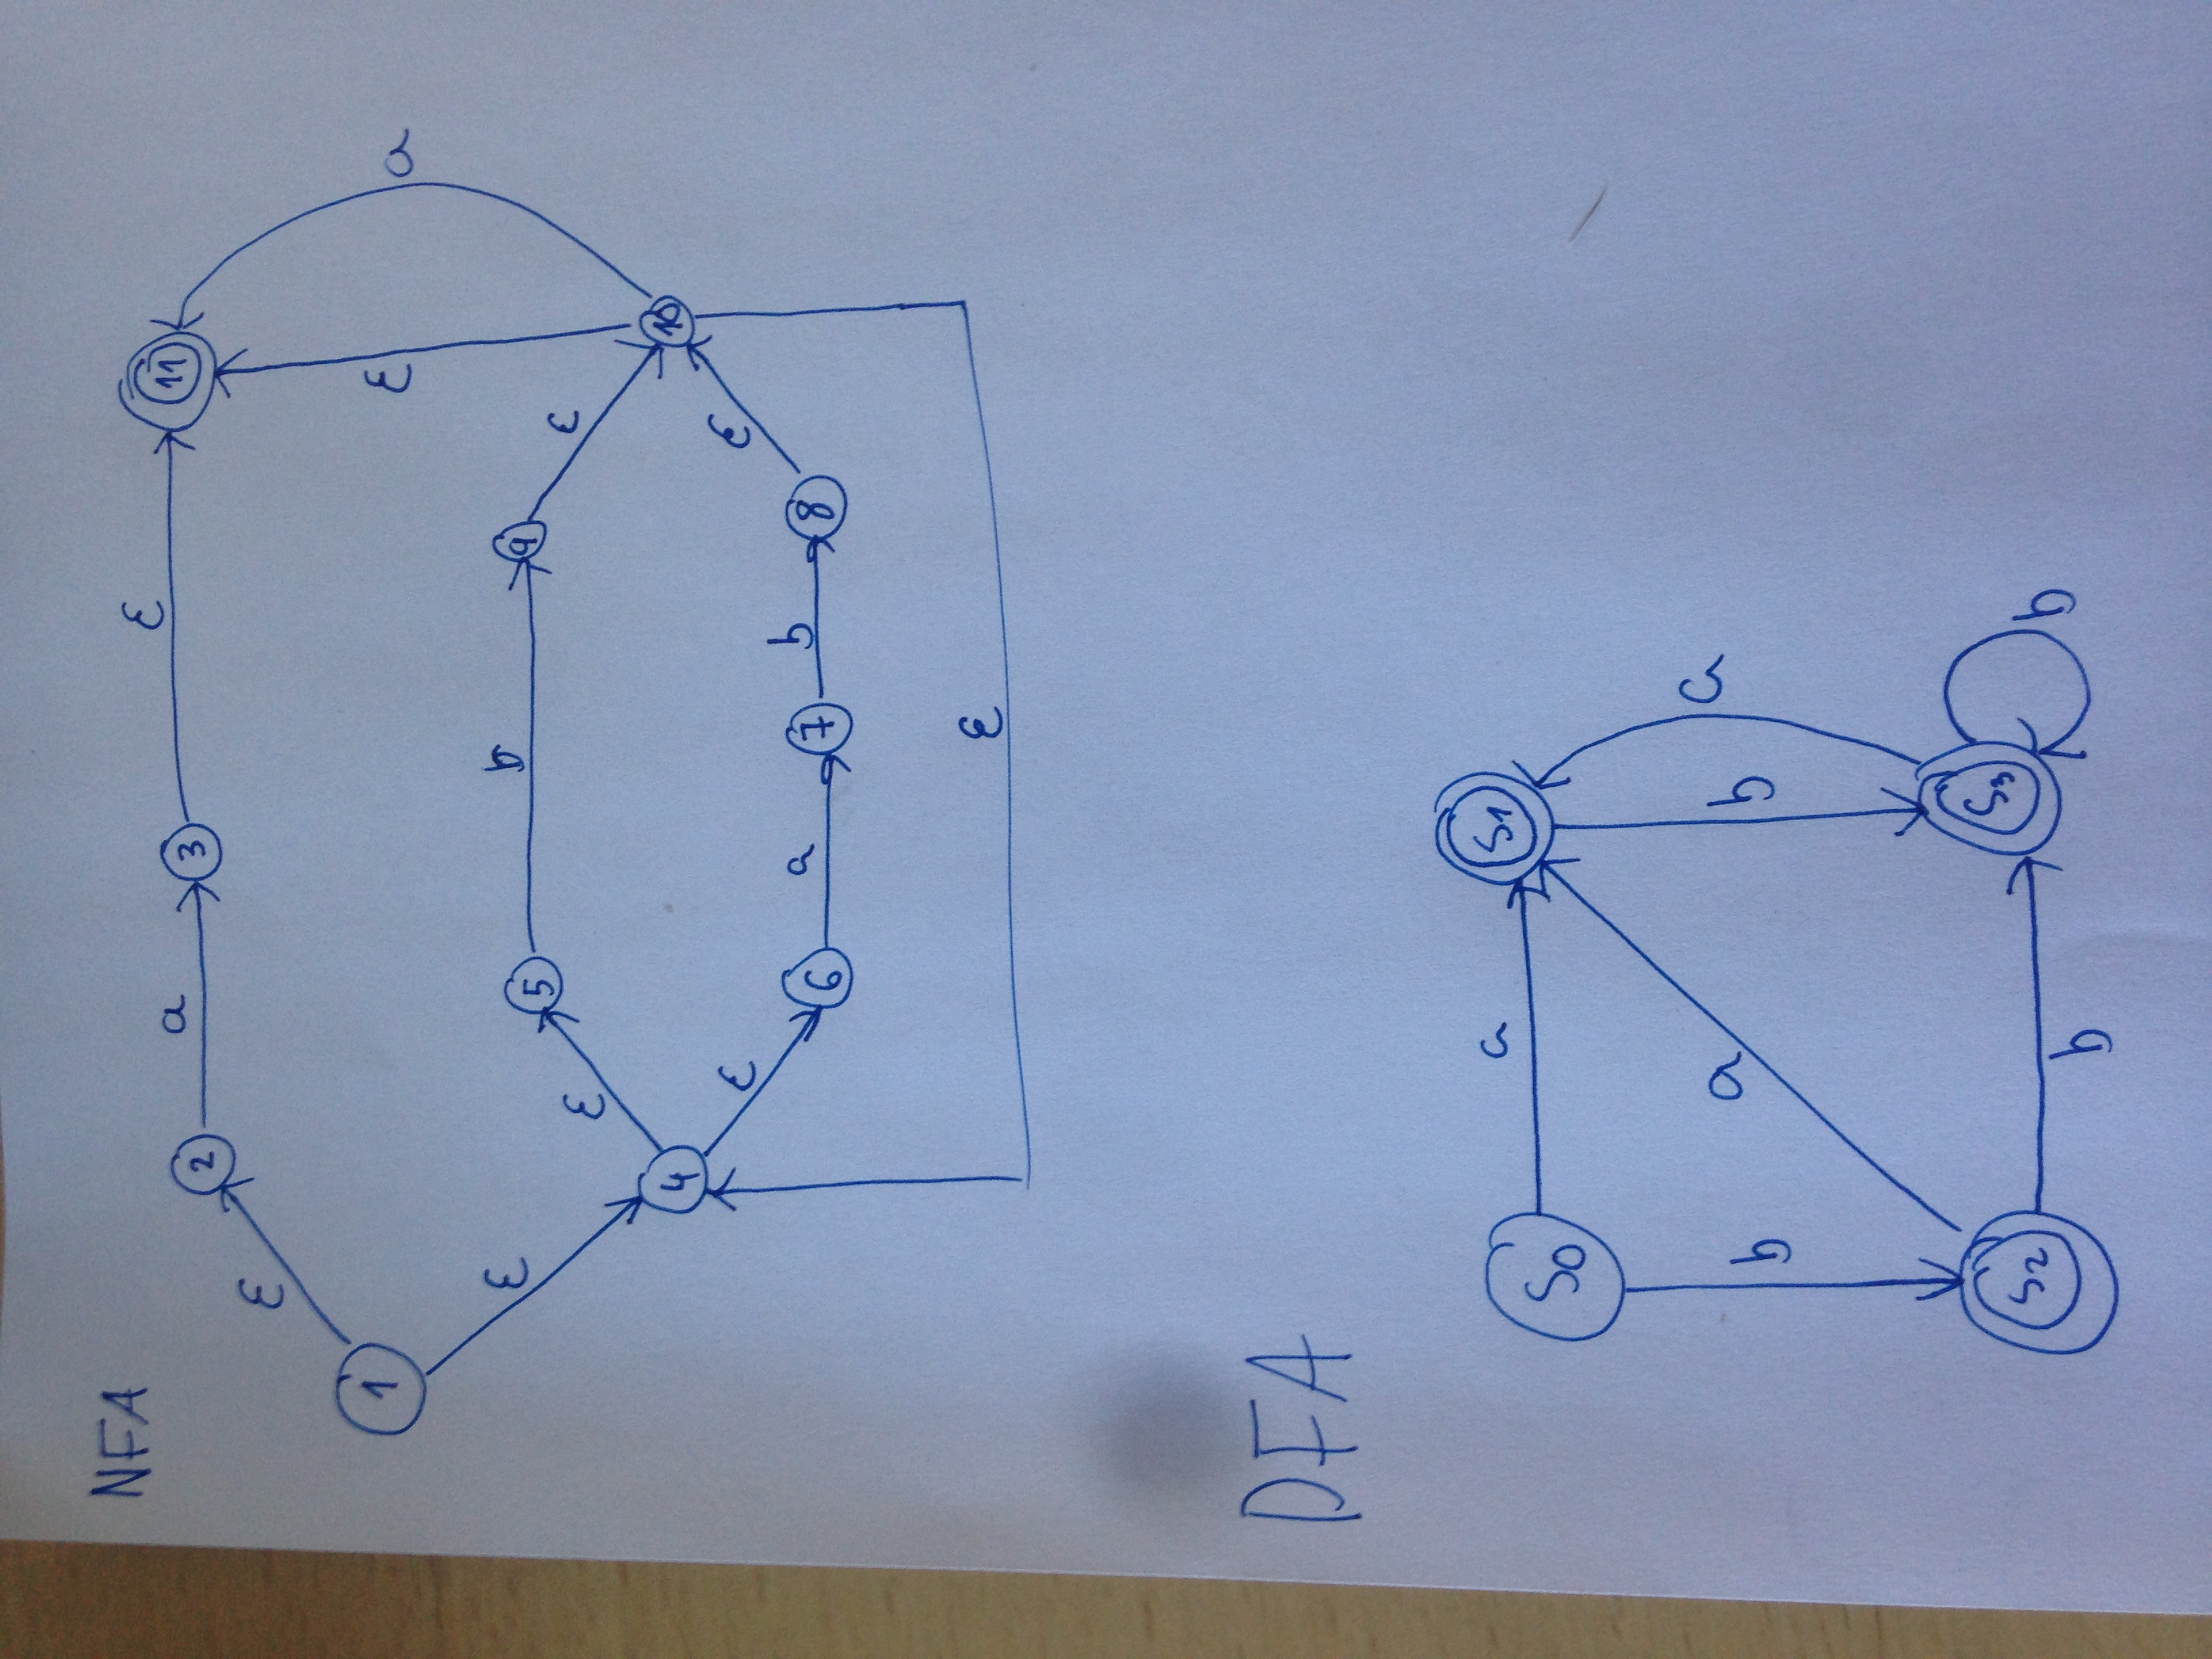 NFA
ε
2
a
3
ε
11
1
ε
ε
a
ε
5
b
9
ε
4
10
ε
6
a
7
b
8
ε
ε
DFA
S0
a
S1
b
a
b
a
S2
b
S3
b